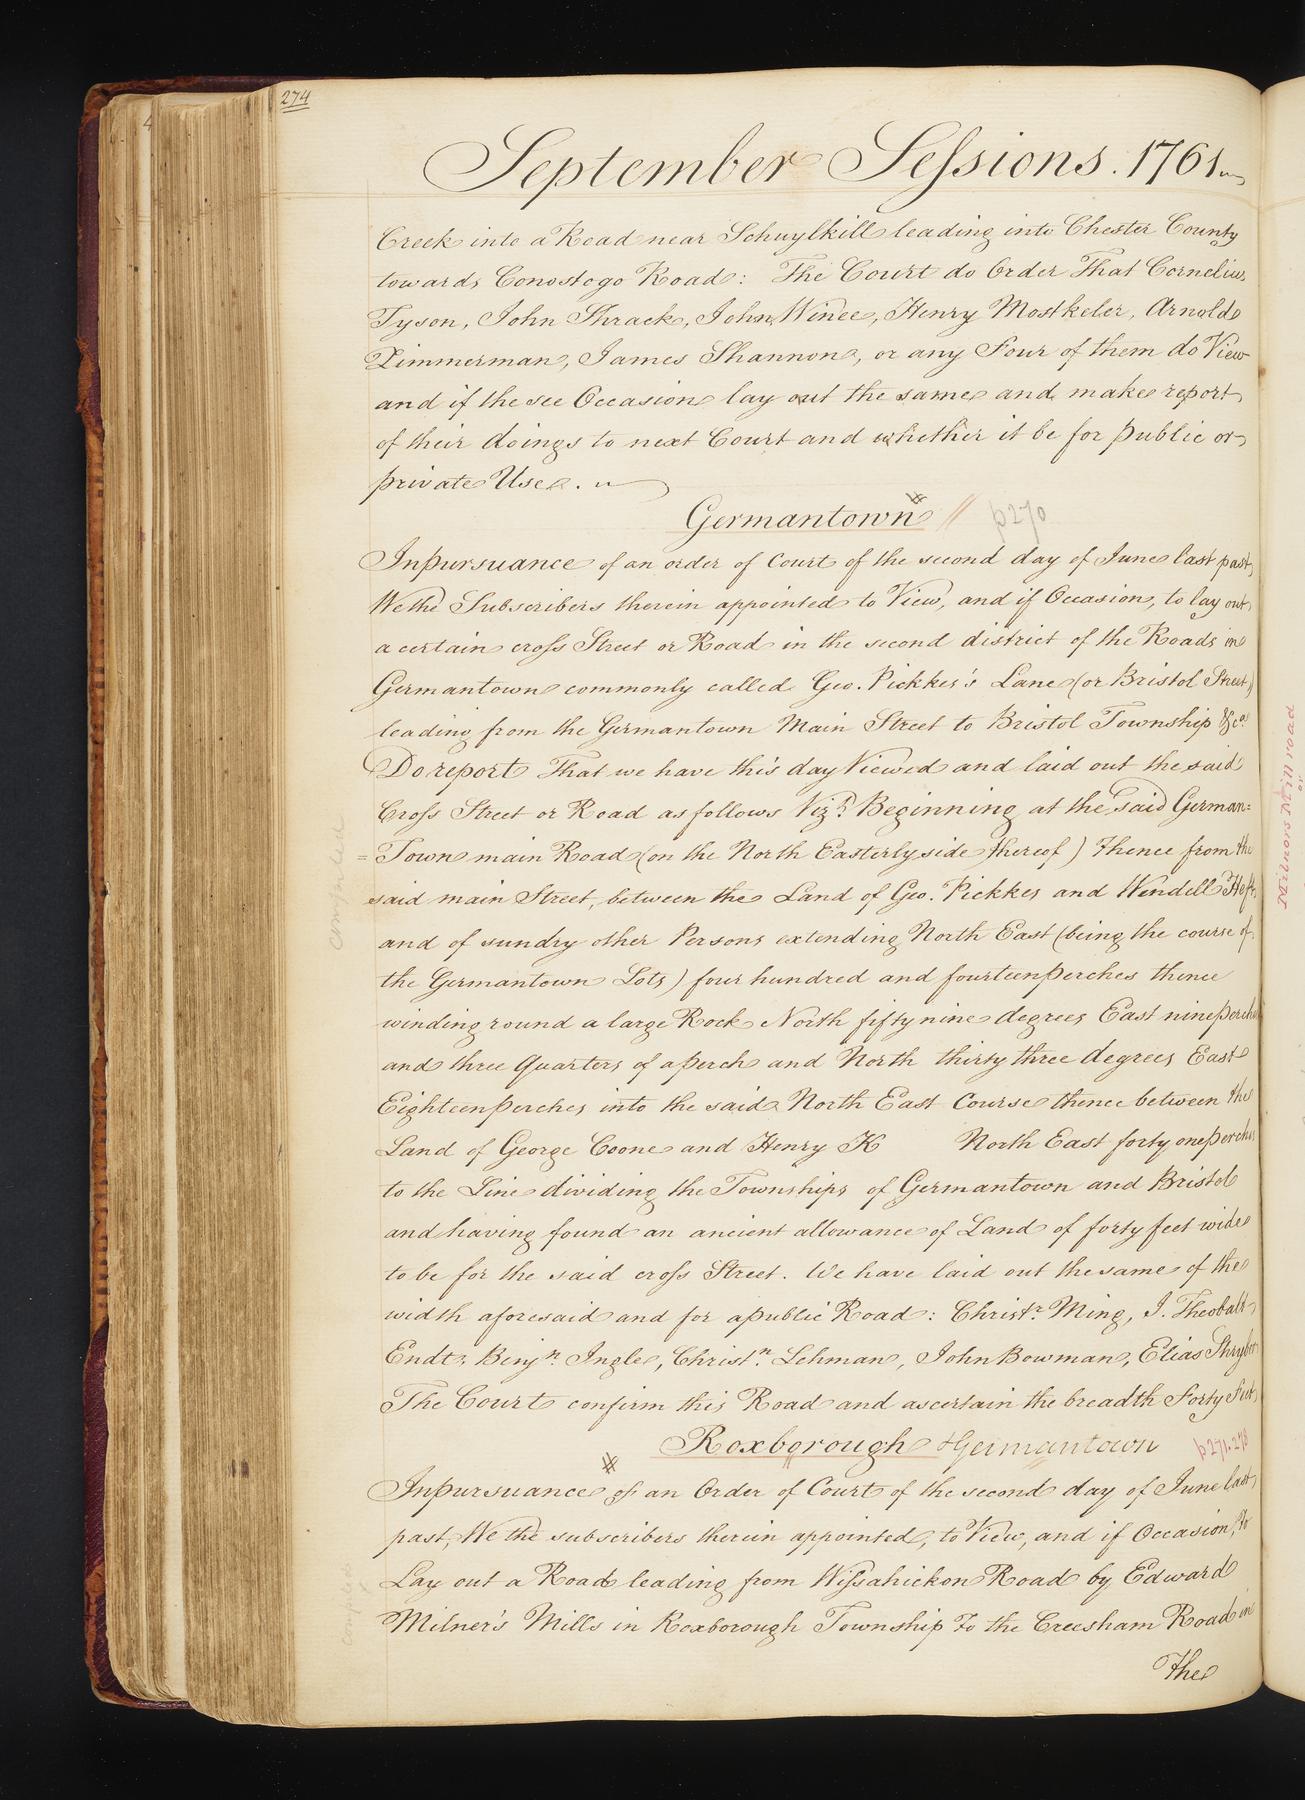 274
September Sessions. 1761
Creek into a Road near Schuylkill leading into Chester County
towards Conostogo Road: The Court do Order That Cornelius
Tyson, John Shrack, John Winee, Henry Mostkeler, Arnold
Zimmerman, James Shannon, or any Four of them do View
and if the see Occasion lay out the same and make report
of their doings to next Court and whether it be for public or
private Use.
Germantown // p270
Inpursuance of an order of Court of the second day of June last past,
We the Subscribers therein appointed to View, and if Occasion, to lay out
a certain cross Street or Road in the second district of the Roads in
Germantown commonly called Geo. Pickkes's Lane (or Bristol Street)
leading from the Germantown Main Street to Bristol Township &ca
Do report That we have this day Viewed and laid out the said
Cross Street or Road as follows Vizt. Beginning at the said German=
= Town main Road (on the North Easterly side thereof) thence from the
said main Street, between the Land of Geo. Pickkes and Wendell
and of sundry other Persons extending North East (being the course of
the Germantown Lots) four hundred and fourteen perches thence
winding round a large Rock North fifty nine degrees East nine perches
and three quarters of a perch and North thirty three degrees East
Eighteen perches into the said North East Course thence between the
Land of George Coone and Henry K North East forty one perches
to the Line dividing the Townships of Germantown and Bristol
and having found an ancient allowance of Land of forty feet wide
to be for the said cross Street. We have laid out the same of the
width aforesaid and for a public Road: Christr. Ming, J. Theobalt
Endt, Benjn. Ingle, Christn. Lehman, John Bowman, Elias
The Court confirm this Road and ascertain the breadth Forty Feet,
Roxborough & Germantown p271.278
Inpursuance of an Order of Court of the second day of June last
past, We the subscribers therein appointed, to View, and if Occasion, to
Lay out a Road leading from Wissahickon Road by Edward
Milner's Mills in Roxborough Township To the Creesham Road in
The
compiled
Milnors Mill road
or